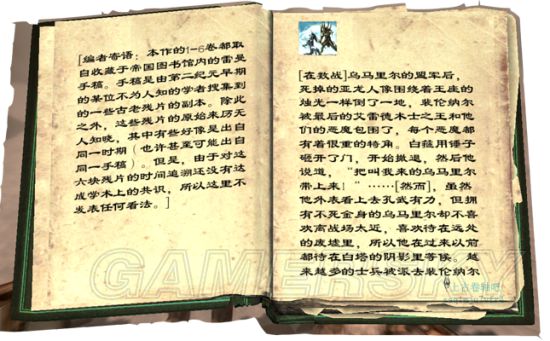 [编者寄语：本作的1-6卷都取
自收藏于帝国图书馆内的雷曼
手稿。手稿是由第二纪元早期
的某位不为人知的学者搜集到
的一些古老残片的副本。除此
之外，这些残片的原始来历无
人知晓，其中有些好像是出自
同一时期（也许甚至可能出自
同一手稿）。但是，由于对这
六块残片的时间追溯还没有达
成学术上的共识，所以这里不
发表任何看法。]
[在致战]乌马里尔的盟军后，
死掉的亚龙人像围绕着王座的
烛光一样倒了一地，裴伦纳尔
被最后的艾雷德术士之王和他
们的恶魔包围了，每个恶魔都
有着很重的特角。白薙用锤子
砸开了门，开始撤退，然后他
说道，“把叫我来的乌马里尔
带上来！”……[然而]，虽然
他外表看上去孔武有力，但拥
有不死金身的乌马里尔却不喜
欢离战场太近，喜欢待在远处
的废墟里，所以他在过来以前
都待在白塔的阴影里等候。越
来越多的士兵被派去裴伦纳尔
GAMERSKY
上古卷轴吧